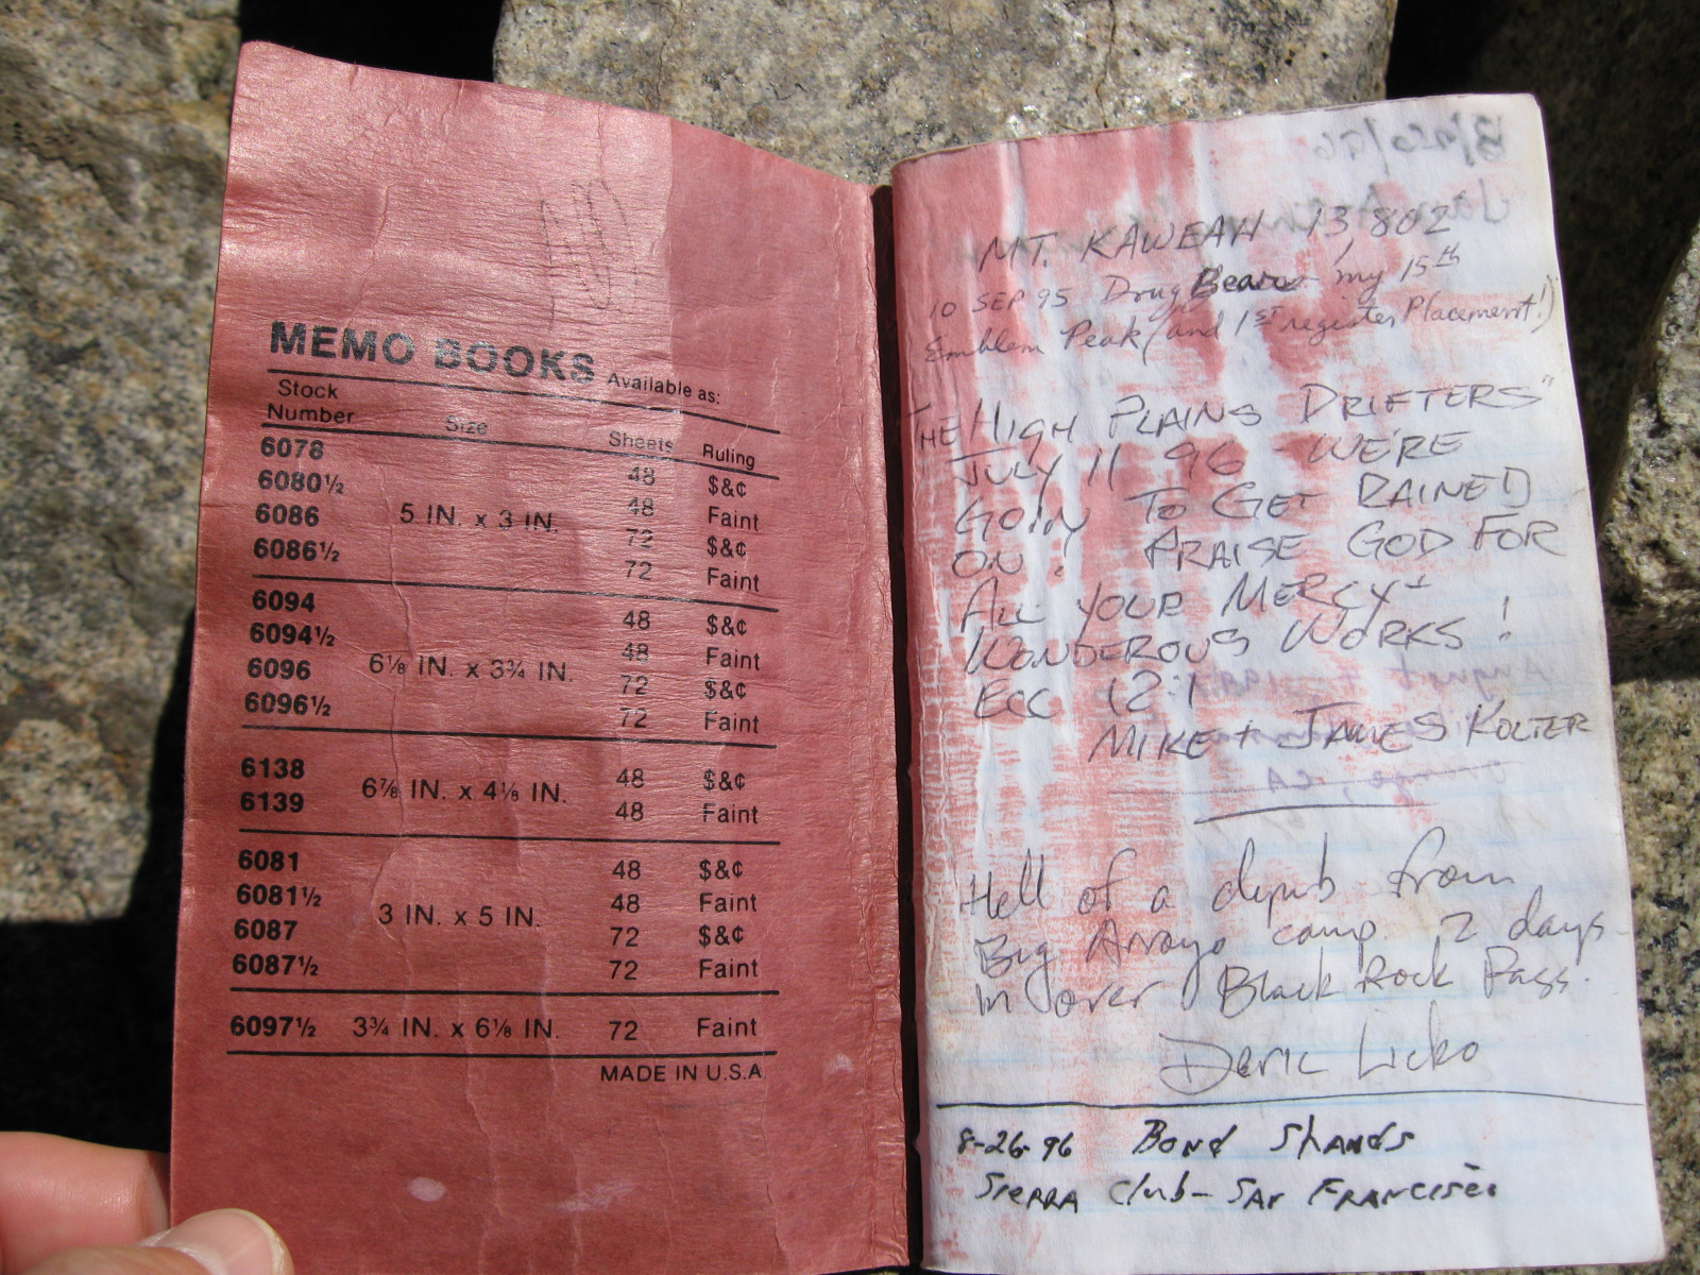 MEMO BOOKS Available as:
Stock Number Size Sheets Ruling
6078 48 $&¢
6080½ 48 Faint
6086 5 IN. x 3 IN. 72 $&¢
6086½ 72 Faint
6094 48 $&¢
6094½ 48 Faint
6096 6⅛ IN. x 3¾ IN. 72 $&¢
6096½ 72 Faint
6138 48 $&¢
6139 6⅞ IN. x 4⅛ IN. 48 Faint
6081 48 $&¢
6081½ 48 Faint
6087 3 IN. x 5 IN. 72 $&¢
6087½ 72 Faint
6097½ 3¾ IN. x 6⅛ IN. 72 Faint
MADE IN U.S.A
MT. KAWEAH 13,802
10 SEP 95 Doug Bear my 15th
Emblem Peak (and 1ST register Placement!)
THE HIGH PLAINS DRIFTERS"
JULY 11 96 - WE'RE
GOIN TO GET RAINED
ON! PRAISE GOD FOR
ALL YOUR MERCY +
WONDEROUS WORKS!
ECC 12:1
MIKE + JAMES KOLTER
Hell of a climb from
Big Arroyo camp. 2 days
in over Black Rock Pass.
Deric Licko
8-26-96 BOND SHANDS
SIERRA Club - SAN FRANCISCO